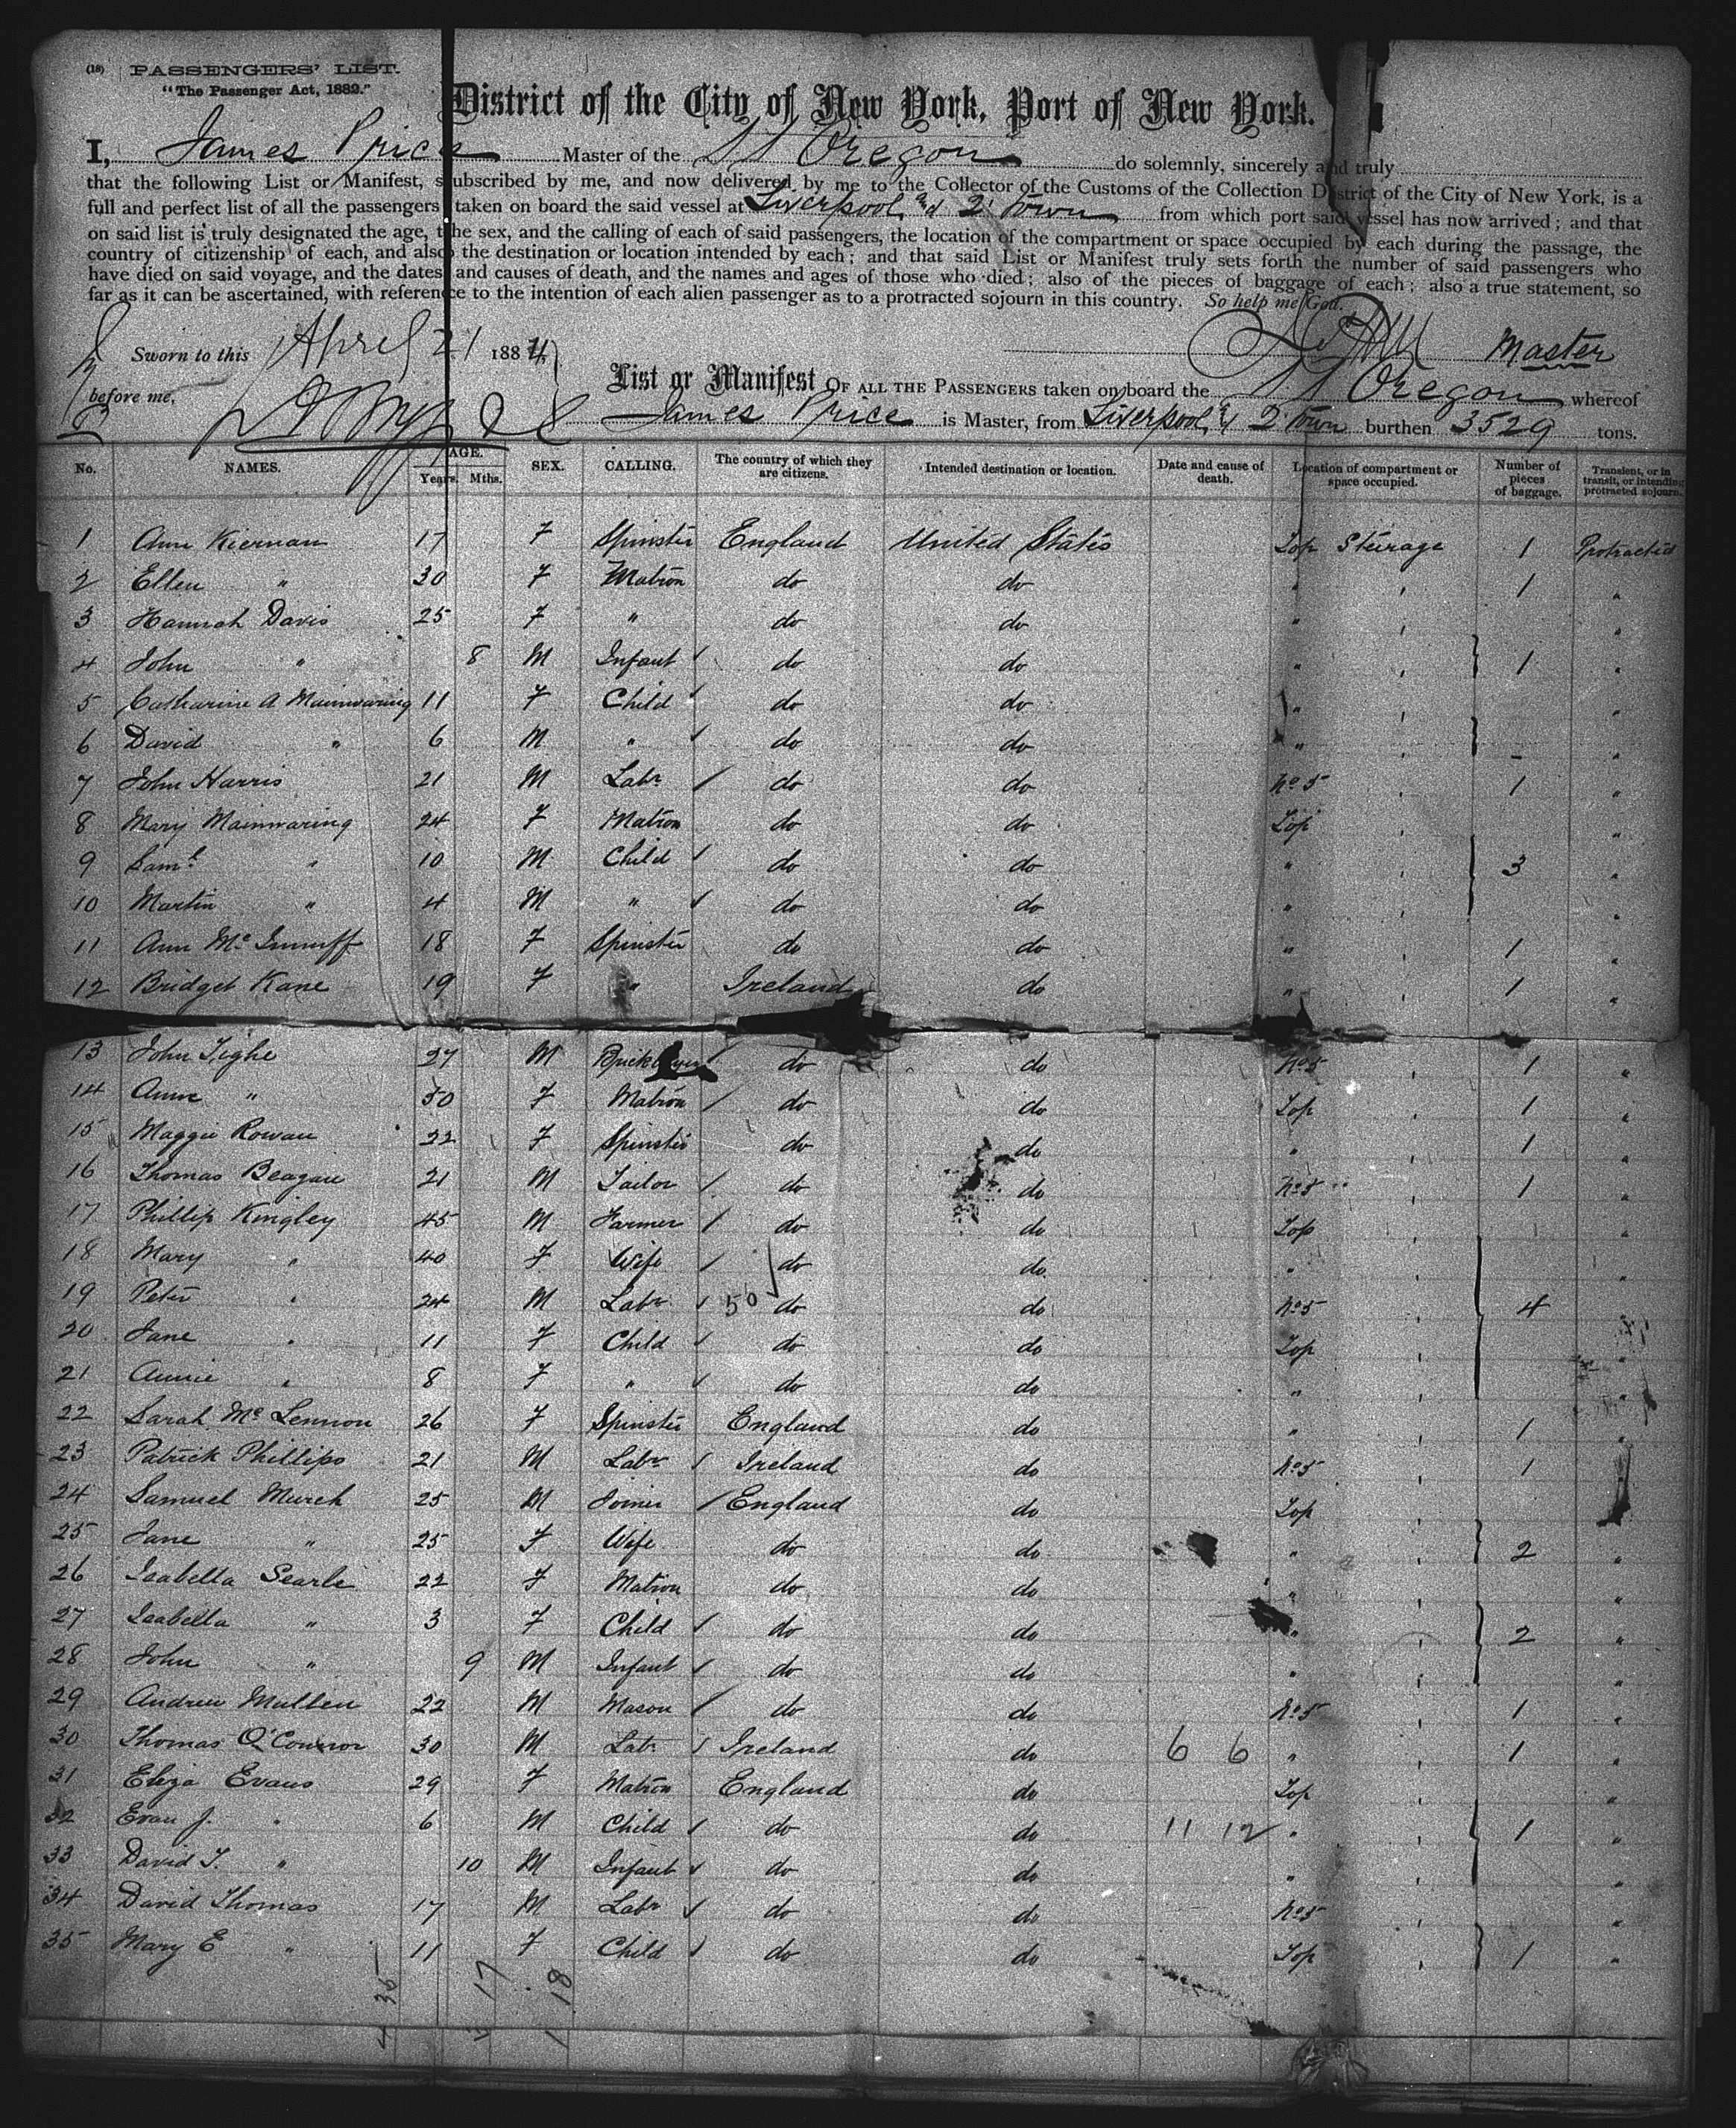 (18) PASSENGERS' LIST.
"The Passenger Act, 1882."
District of the City of New York, Port of New York.
I, James Price Master of the SS Oregon do solemnly, sincerely and truly
that the following List or Manifest, subscribed by me, and now delivered by me to the Collector of the Customs of the Collection District of the City of New York, is a
full and perfect list of all the passengers taken on board the said vessel at Liverpool and Q' Town from which port said vessel has now arrived; and that
on said list is truly designated the age, the sex, and the calling of each of said passengers, the location of the compartment or space occupied by each during the passage, the
country of citizenship of each, and also the destination or location intended by each; and that said List or Manifest truly sets forth the number of said passengers who
have died on said voyage, and the dates and causes of death, and the names and ages of those who died; also of the pieces of baggage of each; also a true statement, so
far as it can be ascertained, with reference to the intention of each alien passenger as to a protracted sojourn in this country. So help me God.
Sworn to this April 21 1884 Master
before me,
List or Manifest OF ALL THE PASSENGERS taken on board the SS Oregon whereof
James Price is Master, from Liverpool & Q' Town burthen 3529 tons.
No. NAMES. AGE. Years. Mths. SEX. CALLING. The country of which they are citizens. Intended destination or location. Date and cause of death. Location of compartment or space occupied. Number of pieces of baggage. Transient, or in transit, or intending protracted sojourn.
1 Ann Kiernan 17 F Spinster England United States Top Steerage 1 Protracted
2 Ellen " 30 F Matron do do " ' 1 "
3 Hannah Davis 25 F " do do " ' "
4 John " 8 M Infant do do " ' 1 "
5 Catharine A Mainwaring 11 F Child do do " ' "
6 David " 6 M " do do " ' - "
7 John Harris 21 M Labr do do No 5 ' 1 "
8 Mary Mainwaring 24 F Matron do do Top ' "
9 Saml " 10 M Child do do " ' 3 "
10 Martin " 4 M " do do " ' "
11 Ann Mc 18 F Spinster do do " ' 1 "
12 Bridget Kane 19 F " Ireland do " ' 1 "
13 John Tighe 27 M Bricklayer do do No 5 ' 1 "
14 Anne " 30 F Matron do do Top ' 1 "
15 Maggie Rowan 22 F Spinster do do " ' 1 "
16 Thomas Beagan 21 M Tailor do do No 5 ' 1 "
17 Phillip Kingley 45 M Farmer do do Top ' "
18 Mary " 40 F Wife do do " ' "
19 Peter " 24 M Labr 50 do do No 5 ' 4 "
20 Jane " 11 F Child do do Top ' "
21 Annie " 8 F " do do " ' "
22 Sarah Mc Lennon 26 F Spinster England do " ' 1 "
23 Patrick Phillips 21 M Labr Ireland do No 5 ' 1 "
24 Samuel Murch 25 M Joiner England do Top ' "
25 Jane " 25 F Wife do do " ' 2 "
26 Isabella Searle 22 F Matron do do " ' "
27 Isabella " 3 F Child do do " ' 2 "
28 John " 9 M Infant do do " ' "
29 Andrew Mullen 22 M Mason do do No 5 ' 1 "
30 Thomas O'Connor 30 M Labr Ireland do 6 6 " ' 1 "
31 Eliza Evans 29 F Matron England do Top ' "
32 Evan J. " 6 M Child do do 11 12 " ' 1 "
33 David T. " 10 M Infant do do " ' "
34 David Thomas 17 M Labr do do No 5 ' "
35 Mary E " 11 F Child do do Top ' 1 "
35 17 18